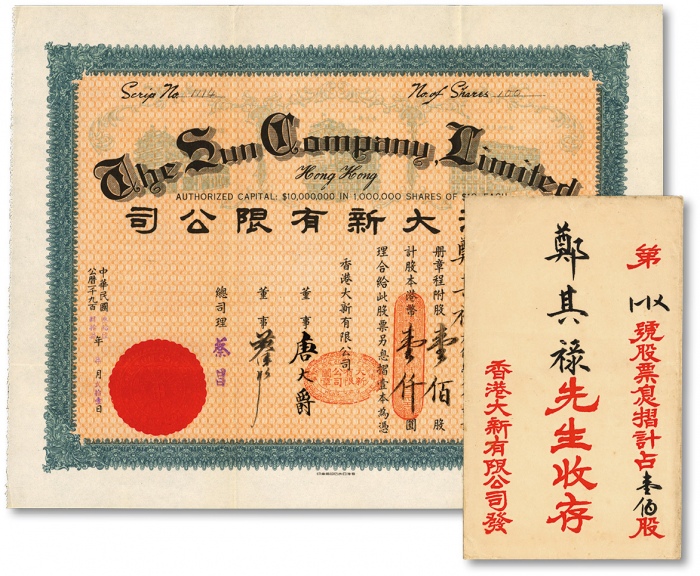 Scrip No. 1114
No. of Shares 100
The Sun Company, Limited
Hong Kong
AUTHORIZED CAPITAL: $10,000,000 IN 1,000,000 SHARES OF $10 EACH
大新有限公司
冊章程附股壹佰股
計股本港幣壹仟圓
理合給此股票另息摺壹本為憑
香港大新有限公司
董事 唐大爵
董事
總司理 蔡昌
中華民國
公曆一千九百 年 月 日
第 號股票息摺計占壹佰股
鄭其祿先生收存
香港大新有限公司發